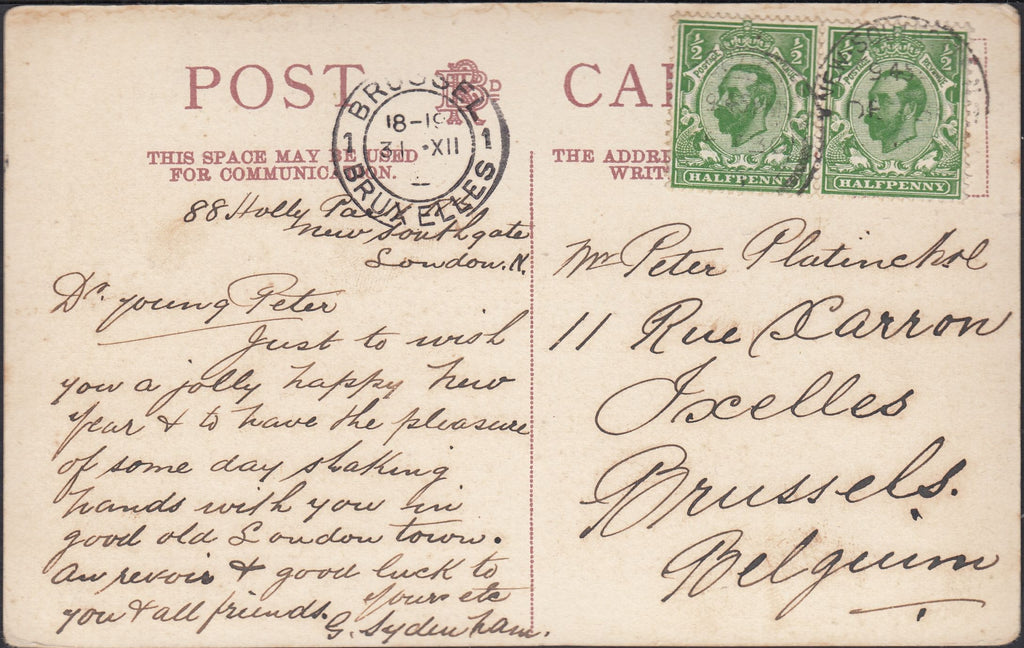 POST CA
THIS SPACE MAY BE USED
FOR COMMUNICATION.
THE ADDRE
WRIT
BRUSSEL
18-19
31 XII
1 1
BRUXELLES
½ ½
POSTAGE REVENUE
HALFPENNY
½ ½
POSTAGE REVENUE
HALFPENNY
NEW SOU
DE
88 Holly Pa
New Southgate
London. N.
Dr. young Peter
Just to wish
you a jolly happy New
Year & to have the pleasure
of some day shaking
hands with you in
good old London town.
Au revoir & good luck to
you & all friends. Yours etc
G. Sydenham.
Mr Peter Platinckse
11 Rue Carron
Ixelles
Brussels.
Belguim